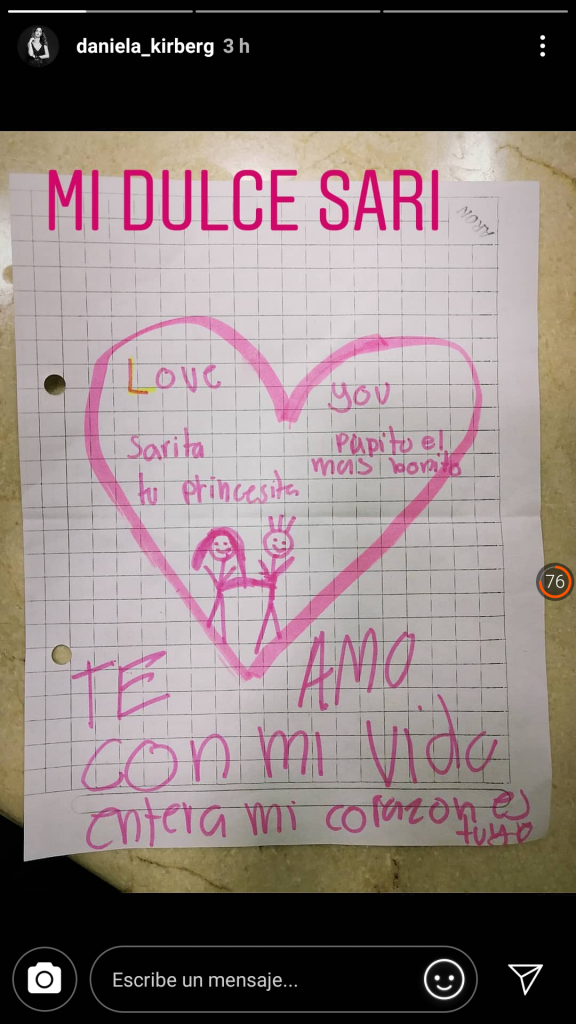 daniela_kirberg 3 h
MI DULCE SARI
ARON
Love you
Sarita
tu princesita
Papito el
mas bonito
TE AMO
con mi vida
entera mi corazon es
tuyo
76
Escribe un mensaje...